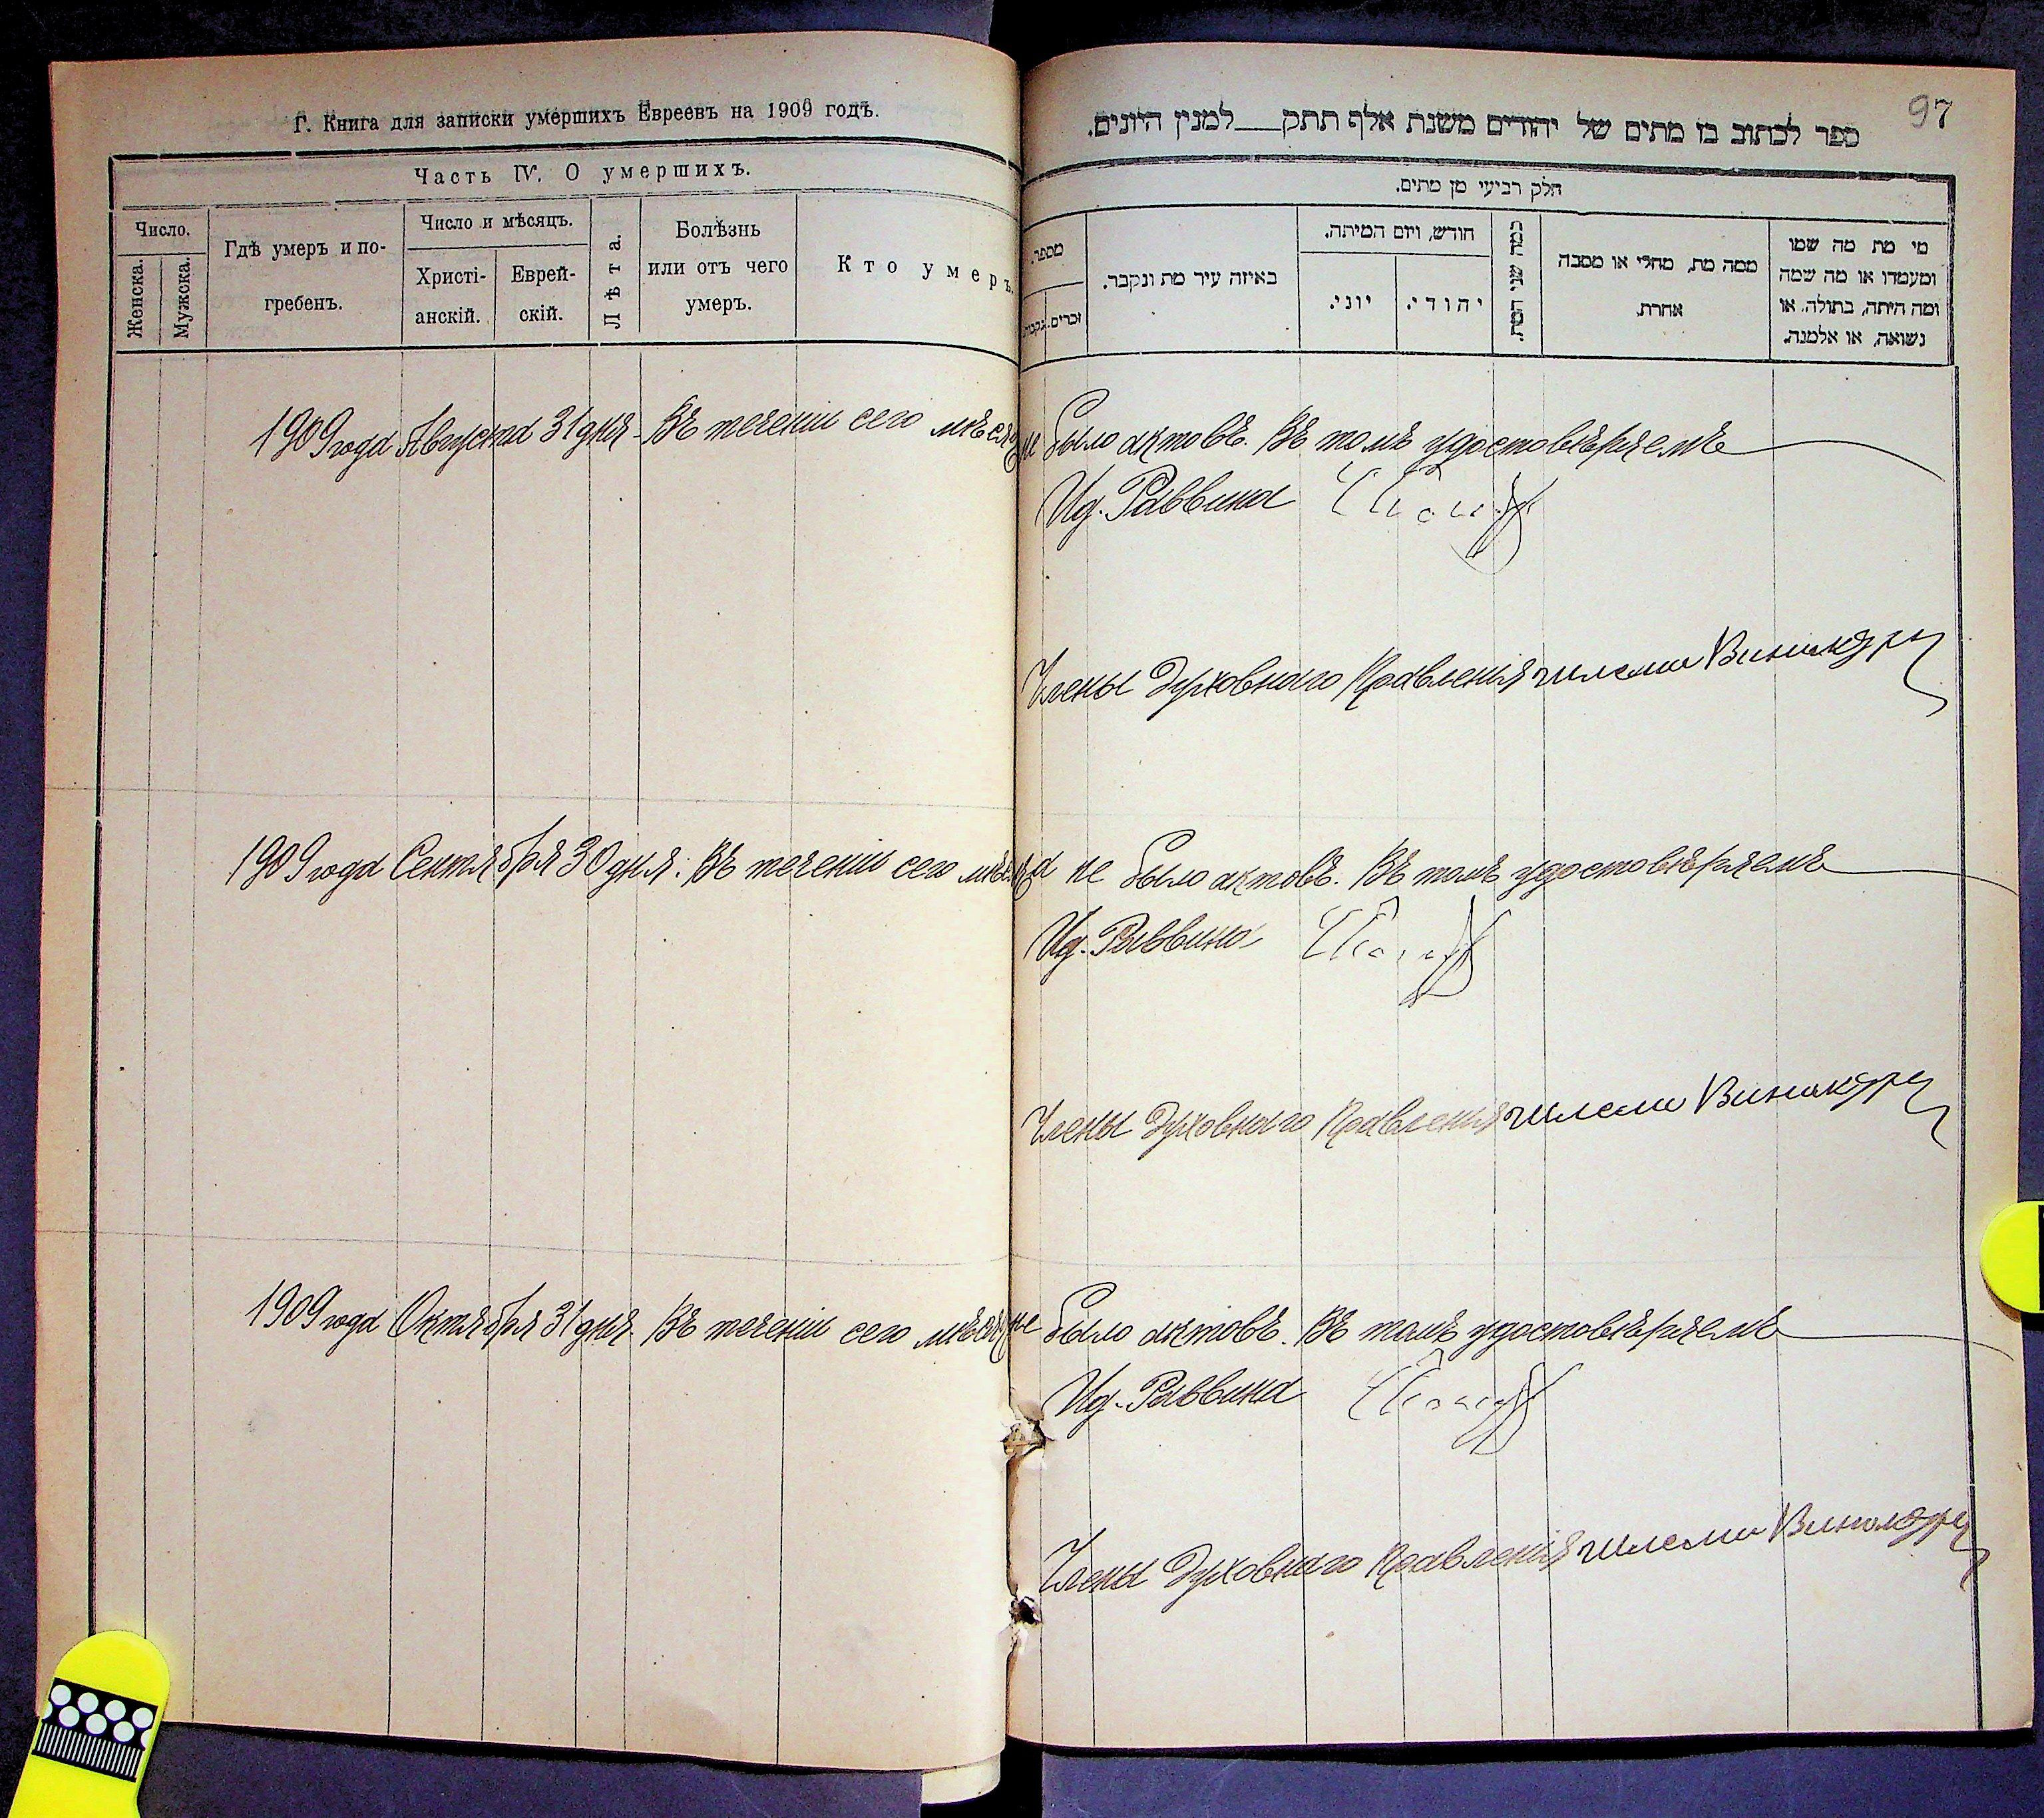 Г. Книга для записки умершихъ Евреевъ на 1909 годъ.
Часть IV. О умершихъ.
Число.
Женска.
Мужска.
Гдѣ умеръ и по-
гребенъ.
Число и мѣсяцъ.
Христі-
анскій.
Еврей-
скій.
Лѣта.
Болѣзнь
или отъ чего
умеръ.
Кто умеръ.
97
ספר לכתוב בו מתים של יהודים משנת אלף תתק___למנין היונים.
חלק רביעי מן מתים.
מספר.
זכרים.
נקבות.
באיזה עיר מת ונקבר.
חודש, ויום המיתה.
יוני.
יהודי.
כמה שני המת.
ממה מת, מחלי או מסבה
אחרת.
מי מת מה שמו
ומעמדו או מה שמה
ומה היתה, בתולה, או
נשואה, או אלמנה.
1909 года Августа 31 дня. Въ теченіи сего мѣсяца не было актовъ. Въ томъ удостовѣряемъ
Ид. Раввина
Члены Духовнаго Правленія шлема Винокуръ
1909 года Сентября 30 дня. Въ теченіи сего мѣсяца не было актовъ. Въ томъ удостовѣряемъ
Ид. Раввина
Члены Духовнаго Правленія шлема Винокуръ
1909 года Октября 31 дня. Въ теченіи сего мѣсяца не было актовъ. Въ томъ удостовѣряемъ
Ид. Раввина
Члены Духовнаго Правленія шлема Винокуръ